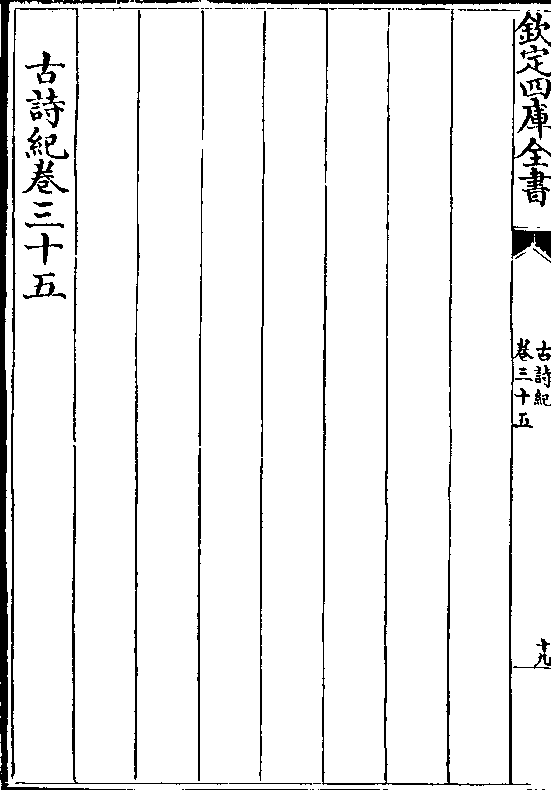 欽定四庫全書
古詩紀
卷三十五
十九
古詩紀卷三十五